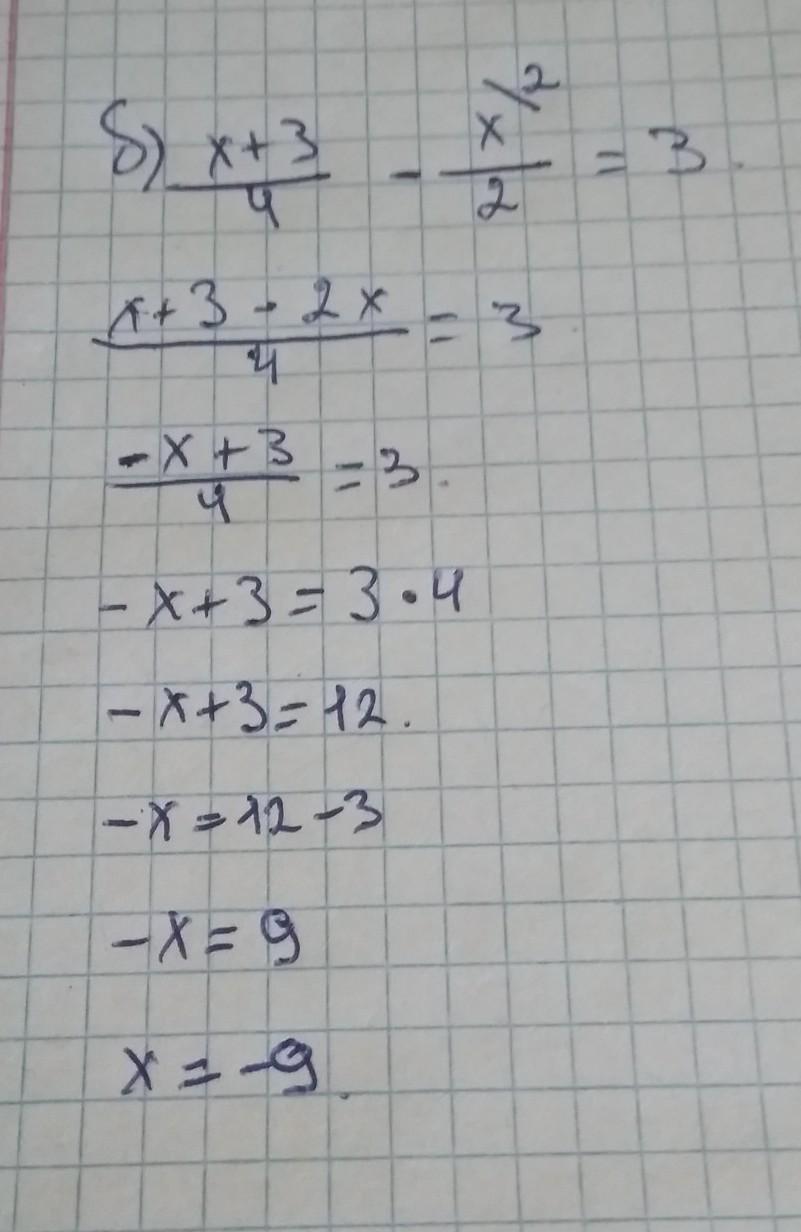 б) \frac{x+3}{4} - \frac{x^{\backslash 2}}{2} = 3.
\frac{x+3-2x}{4} = 3.
\frac{-x+3}{4} = 3.
-x+3=3·4
-x+3=12.
-x=12-3
-x=9
x=-9.